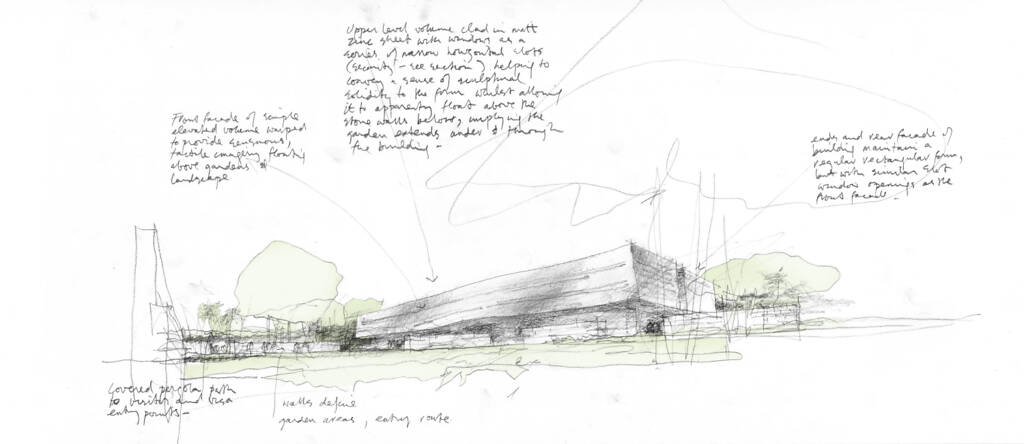 Upper level volume clad in matt
zinc sheet with windows as a
series of narrow horizontal slots
(security - see section) helping to
convey a sense of sculptural
solidity to the form whilst allowing
it to apparently float above the
stone walls below, implying the
garden extends under & through
the building -
Front facade of simple
elevated volume warped
to provide sensuous,
tactile imagery floating
above gardens &
landscape
ends and rear facade of
building maintain a
regular rectangular form,
but with similar slot
window openings as the
front facade -
Covered pergola path
to visitor and visa
entry points -
walls define
garden areas, entry route